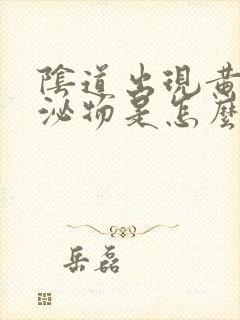 陰道出現黃
泌物是怎麼
岳磊